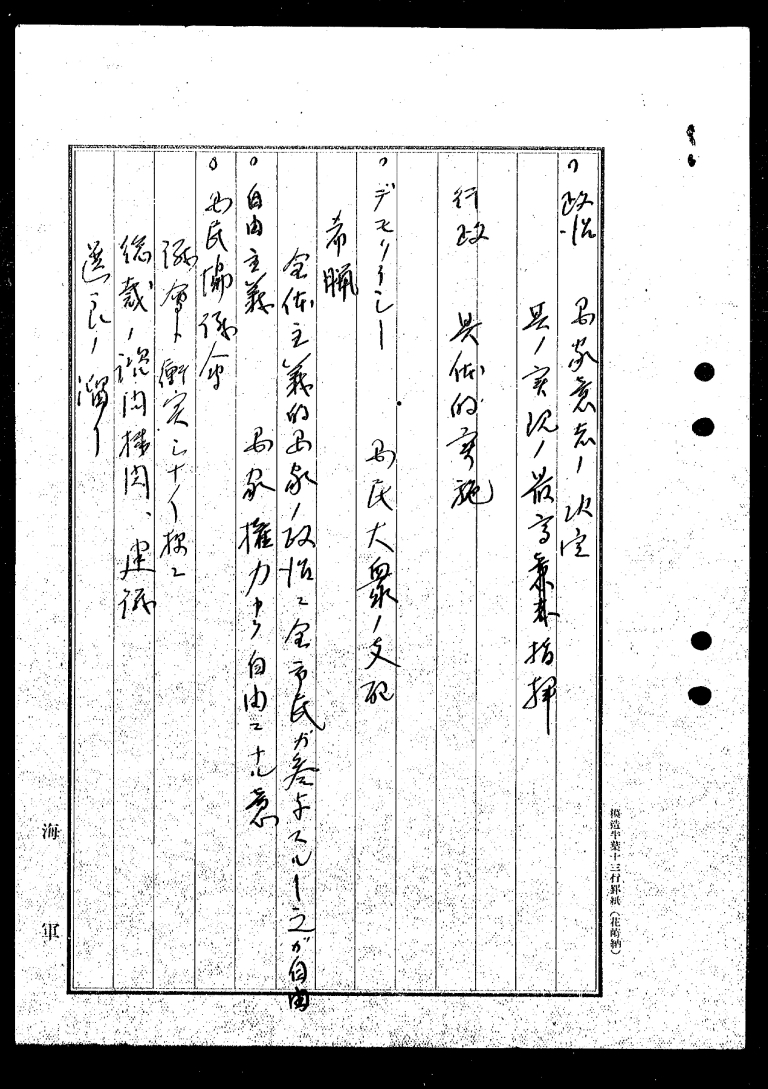 。政治 国家意志ノ決定
其ノ実現ノ最高 指揮
行政 具体的実施
。デモクラシー 国民大衆ノ支配
希臘
全体主義的国家ノ政治ニ全市民ガ参与スル 之ガ自由
。自由主義 国家権力カラ自由ニナル意
。国民協議会
議会ト衝突シナイ様ニ
総裁ノ諮問機関、建議
選良ノ溜リ
海軍
模造半葉十三行罫紙